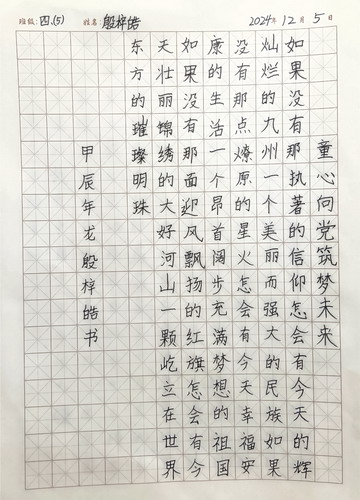 班级:四.(5) 姓名 殷梓皓 2024年 12月 5日
童心向党筑梦未来
如果没有那执著的信仰怎会有今天的辉
灿烂的九州一个美丽而强大的民族如果
没有那点燎原的星火怎会有今天幸福安
康的生活一个昂首阔步充满梦想的祖国
如果没有那面迎风飘扬的红旗怎会有今
天壮丽锦绣的大好河山一颗屹立在世界
东方的璀璨明珠
甲辰年龙殷梓皓书